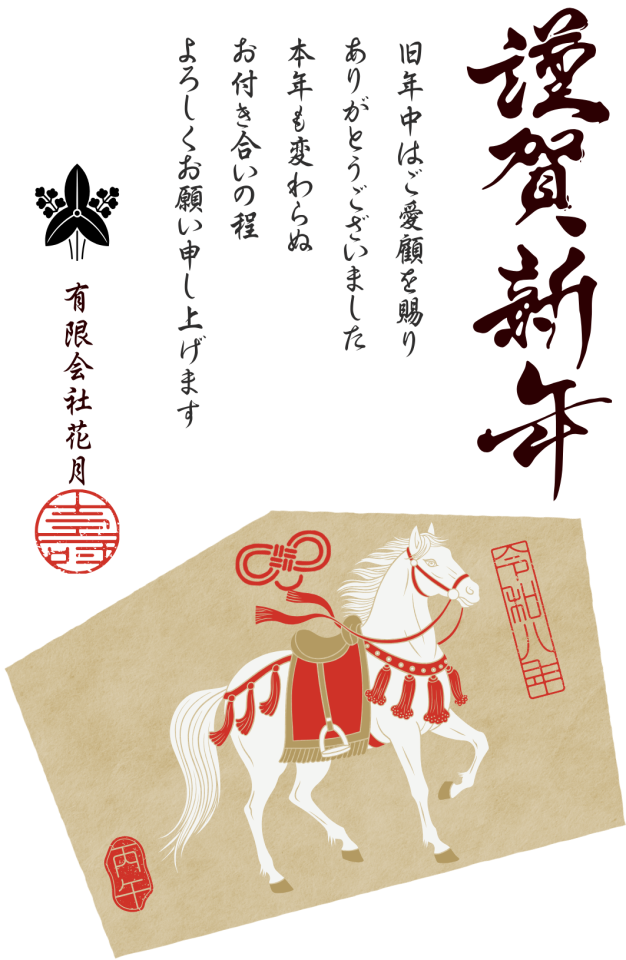 謹賀新年
旧年中はご愛顧を賜り
ありがとうございました
本年も変わらぬ
お付き合いの程
よろしくお願い申し上げます
有限会社花月
寿
令和八年
丙午